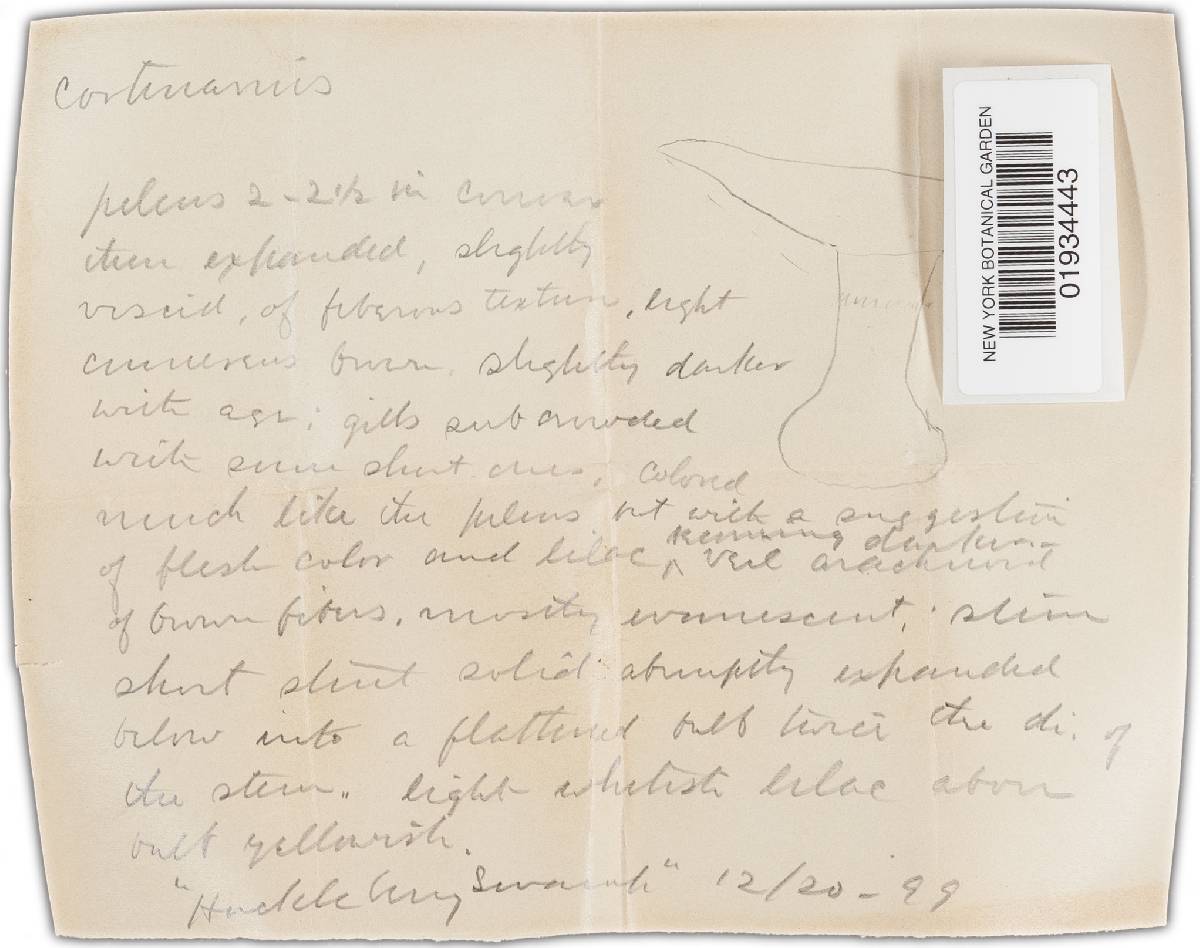 Cortinarius
pileus 2-2½ in convex
then expanded, slightly
viscid, of fibrous texture, light
cinnereus brown. slightly darker
with age; gills subcrowded
with some short ones, colored
much like the pileus but with a suggestion
of flesh color and lilac, darker
Veil arachnoid
of brown fibres. mostly evanescent; stem
short stout solid abruptly expanded
below into a flattened bulb twice the di. of
the stem.. light whitish lilac above
bulb yellowish.
"Huckleberry Swamp" 12/20-99
NEW YORK BOTANICAL GARDEN
01934443